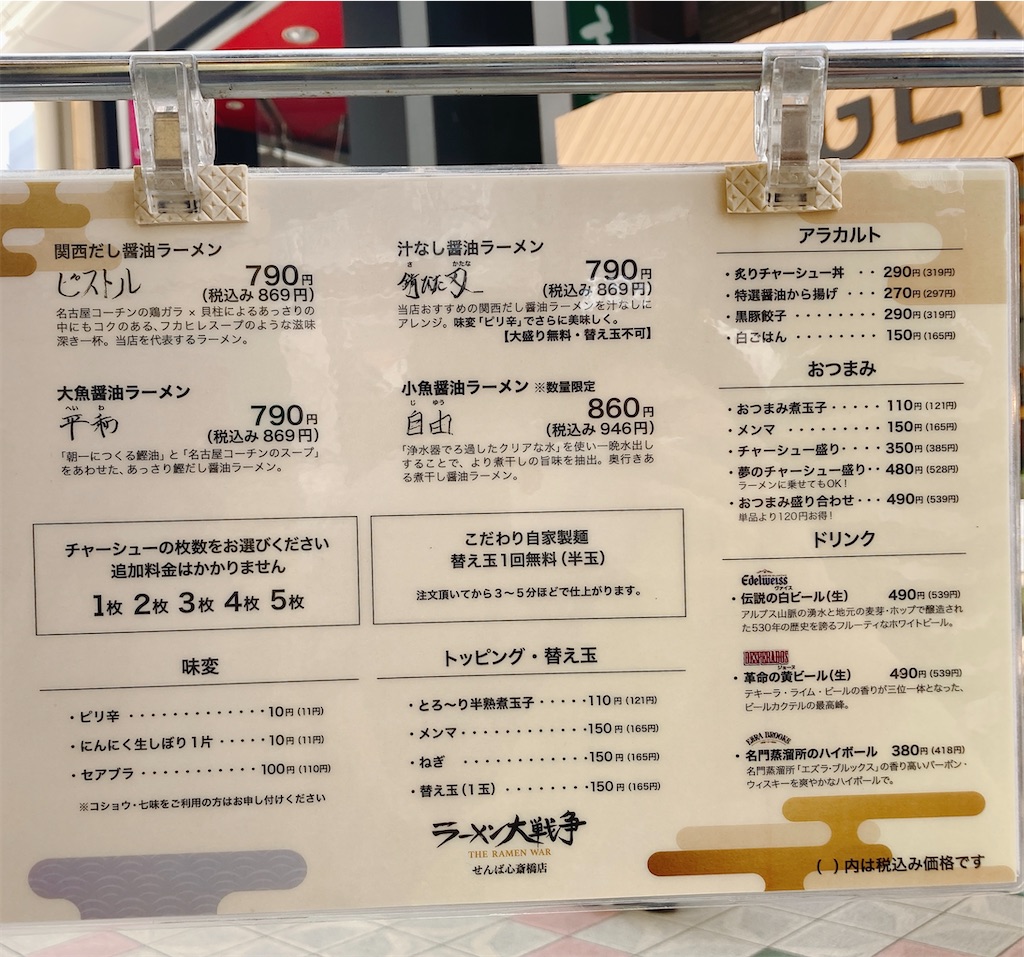 GEN
関西だし醤油ラーメン
ピストル
790円
(税込み 869円)
名古屋コーチンの鶏ガラ × 貝柱によるあっさりの
中にもコクのある、フカヒレスープのような滋味
深き一杯。当店を代表するラーメン。
汁なし醤油ラーメン
さ かたな
錆びた刀
790円
(税込み 869円)
当店おすすめの関西だし醤油ラーメンを汁なしに
アレンジ。味変「ピリ辛」でさらに美味しく。
【大盛り無料・替え玉不可】
大魚醤油ラーメン
へい わ
平和
790円
(税込み 869円)
「朝一につくる鰹油」と「名古屋コーチンのスープ」
をあわせた、あっさり鰹だし醤油ラーメン。
小魚醤油ラーメン ※数量限定
じ ゆう
自由
860円
(税込み 946円)
「浄水器でろ過したクリアな水」を使い一晩水出し
することで、より煮干しの旨味を抽出。奥行きあ
る煮干し醤油ラーメン。
チャーシューの枚数をお選びください
追加料金はかかりません
1枚 2枚 3枚 4枚 5枚
こだわり自家製麺
替え玉1回無料(半玉)
注文頂いてから3~5分ほどで仕上がります。
味変
・ピリ辛 ・・・・・・・・・・・・10円(11円)
・にんにく生しぼり1片 ・・・・・10円(11円)
・セアブラ ・・・・・・・・・・・100円(110円)
※コショウ・七味をご利用の方はお申し付けください
トッピング・替え玉
・とろ~り半熟煮玉子・・・・・110円(121円)
・メンマ・・・・・・・・・・・・150円(165円)
・ねぎ ・・・・・・・・・・・・150円(165円)
・替え玉(1玉) ・・・・・・・・150円(165円)
ラーメン大戦争
THE RAMEN WAR
せんば心斎橋店
アラカルト
・炙りチャーシュー丼 ・・290円(319円)
・特選醤油から揚げ ・・・270円(297円)
・黒豚餃子・・・・・・・・290円(319円)
・白ごはん・・・・・・・・150円(165円)
おつまみ
・おつまみ煮玉子・・・・・110円(121円)
・メンマ・・・・・・・・・150円(165円)
・チャーシュー盛り・・・・350円(385円)
・夢のチャーシュー盛り・・480円(528円)
ラーメンに乗せてもOK!
・おつまみ盛り合わせ・・・490円(539円)
単品より120円お得!
ドリンク
Edelweiss
ヴァイス
・伝説の白ビール(生) 490円(539円)
アルプス山脈の湧水と地元の麦芽・ホップで醸造され
た530年の歴史を誇るフルーティなホワイトビール。
DESPERADOS
ジョーヌ
・革命の黄ビール(生) 490円(539円)
テキーラ・ライム・ビールの香りが三位一体となった、
ビールカクテルの最高峰。
EZRA BROOKS
・名門蒸溜所のハイボール 380円(418円)
名門蒸溜所「エズラ・ブルックス」の香り高いバーボン・
ウィスキーを爽やかなハイボールで。
( )内は税込み価格です